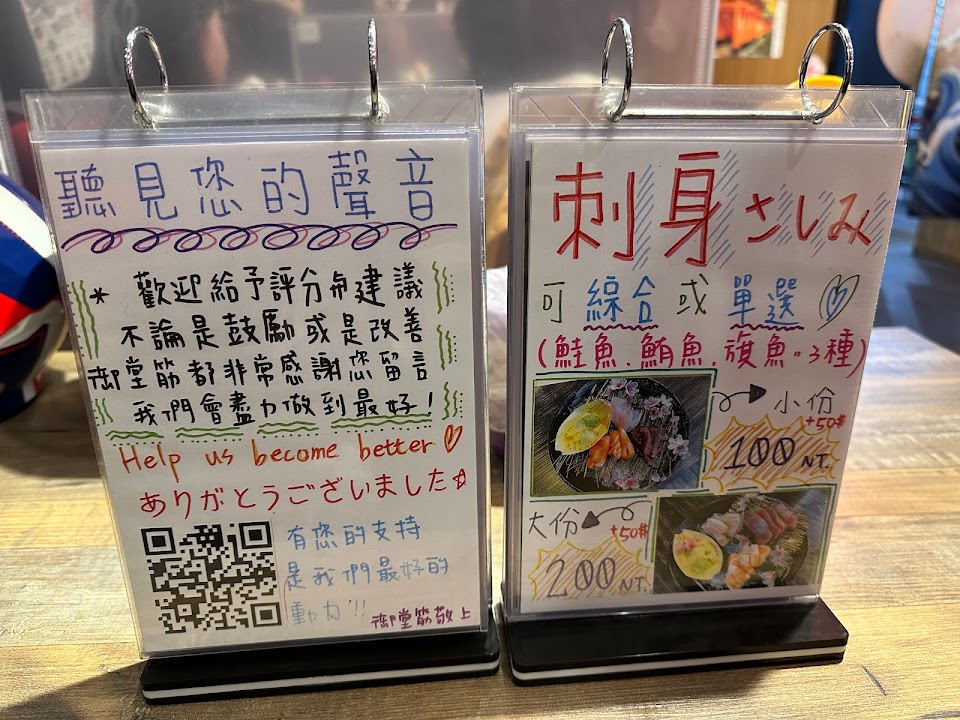 聽見您的聲音
* 歡迎給予評分與建議
不論是鼓勵或是改善
御堂筋都非常感謝您留言
我們會盡力做到最好！
Help us become better
ありがとうございました
有您的支持
是我們最好的
動力!!
御堂筋敬上
刺身さしみ
可綜合或單選
(鮭魚.鮪魚.旗魚..3種)
小份
+50#
100 NT.
大份
+50#
200 NT.